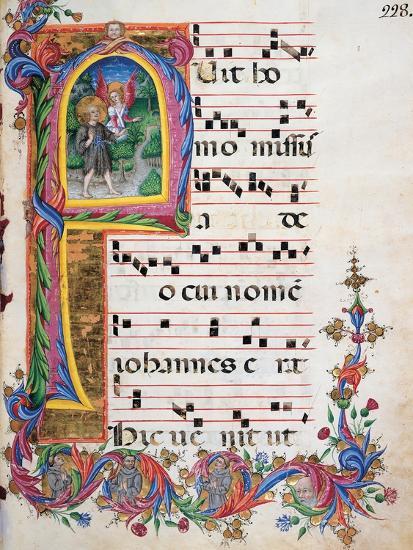 228.
Fuit ho
mo missū
a de
o cui nomē
iohannes e rat
hic ue nit ut